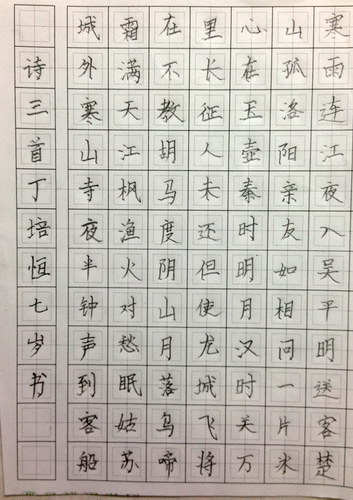 寒雨连江夜入吴平明送客楚
山孤洛阳亲友如相问一片冰
心在玉壶秦时明月汉时关万
里长征人未还但使龙城飞将
在不教胡马度阴山月落乌啼
霜满天江枫渔火对愁眠姑苏
城外寒山寺夜半钟声到客船
诗三首丁培恒七岁书